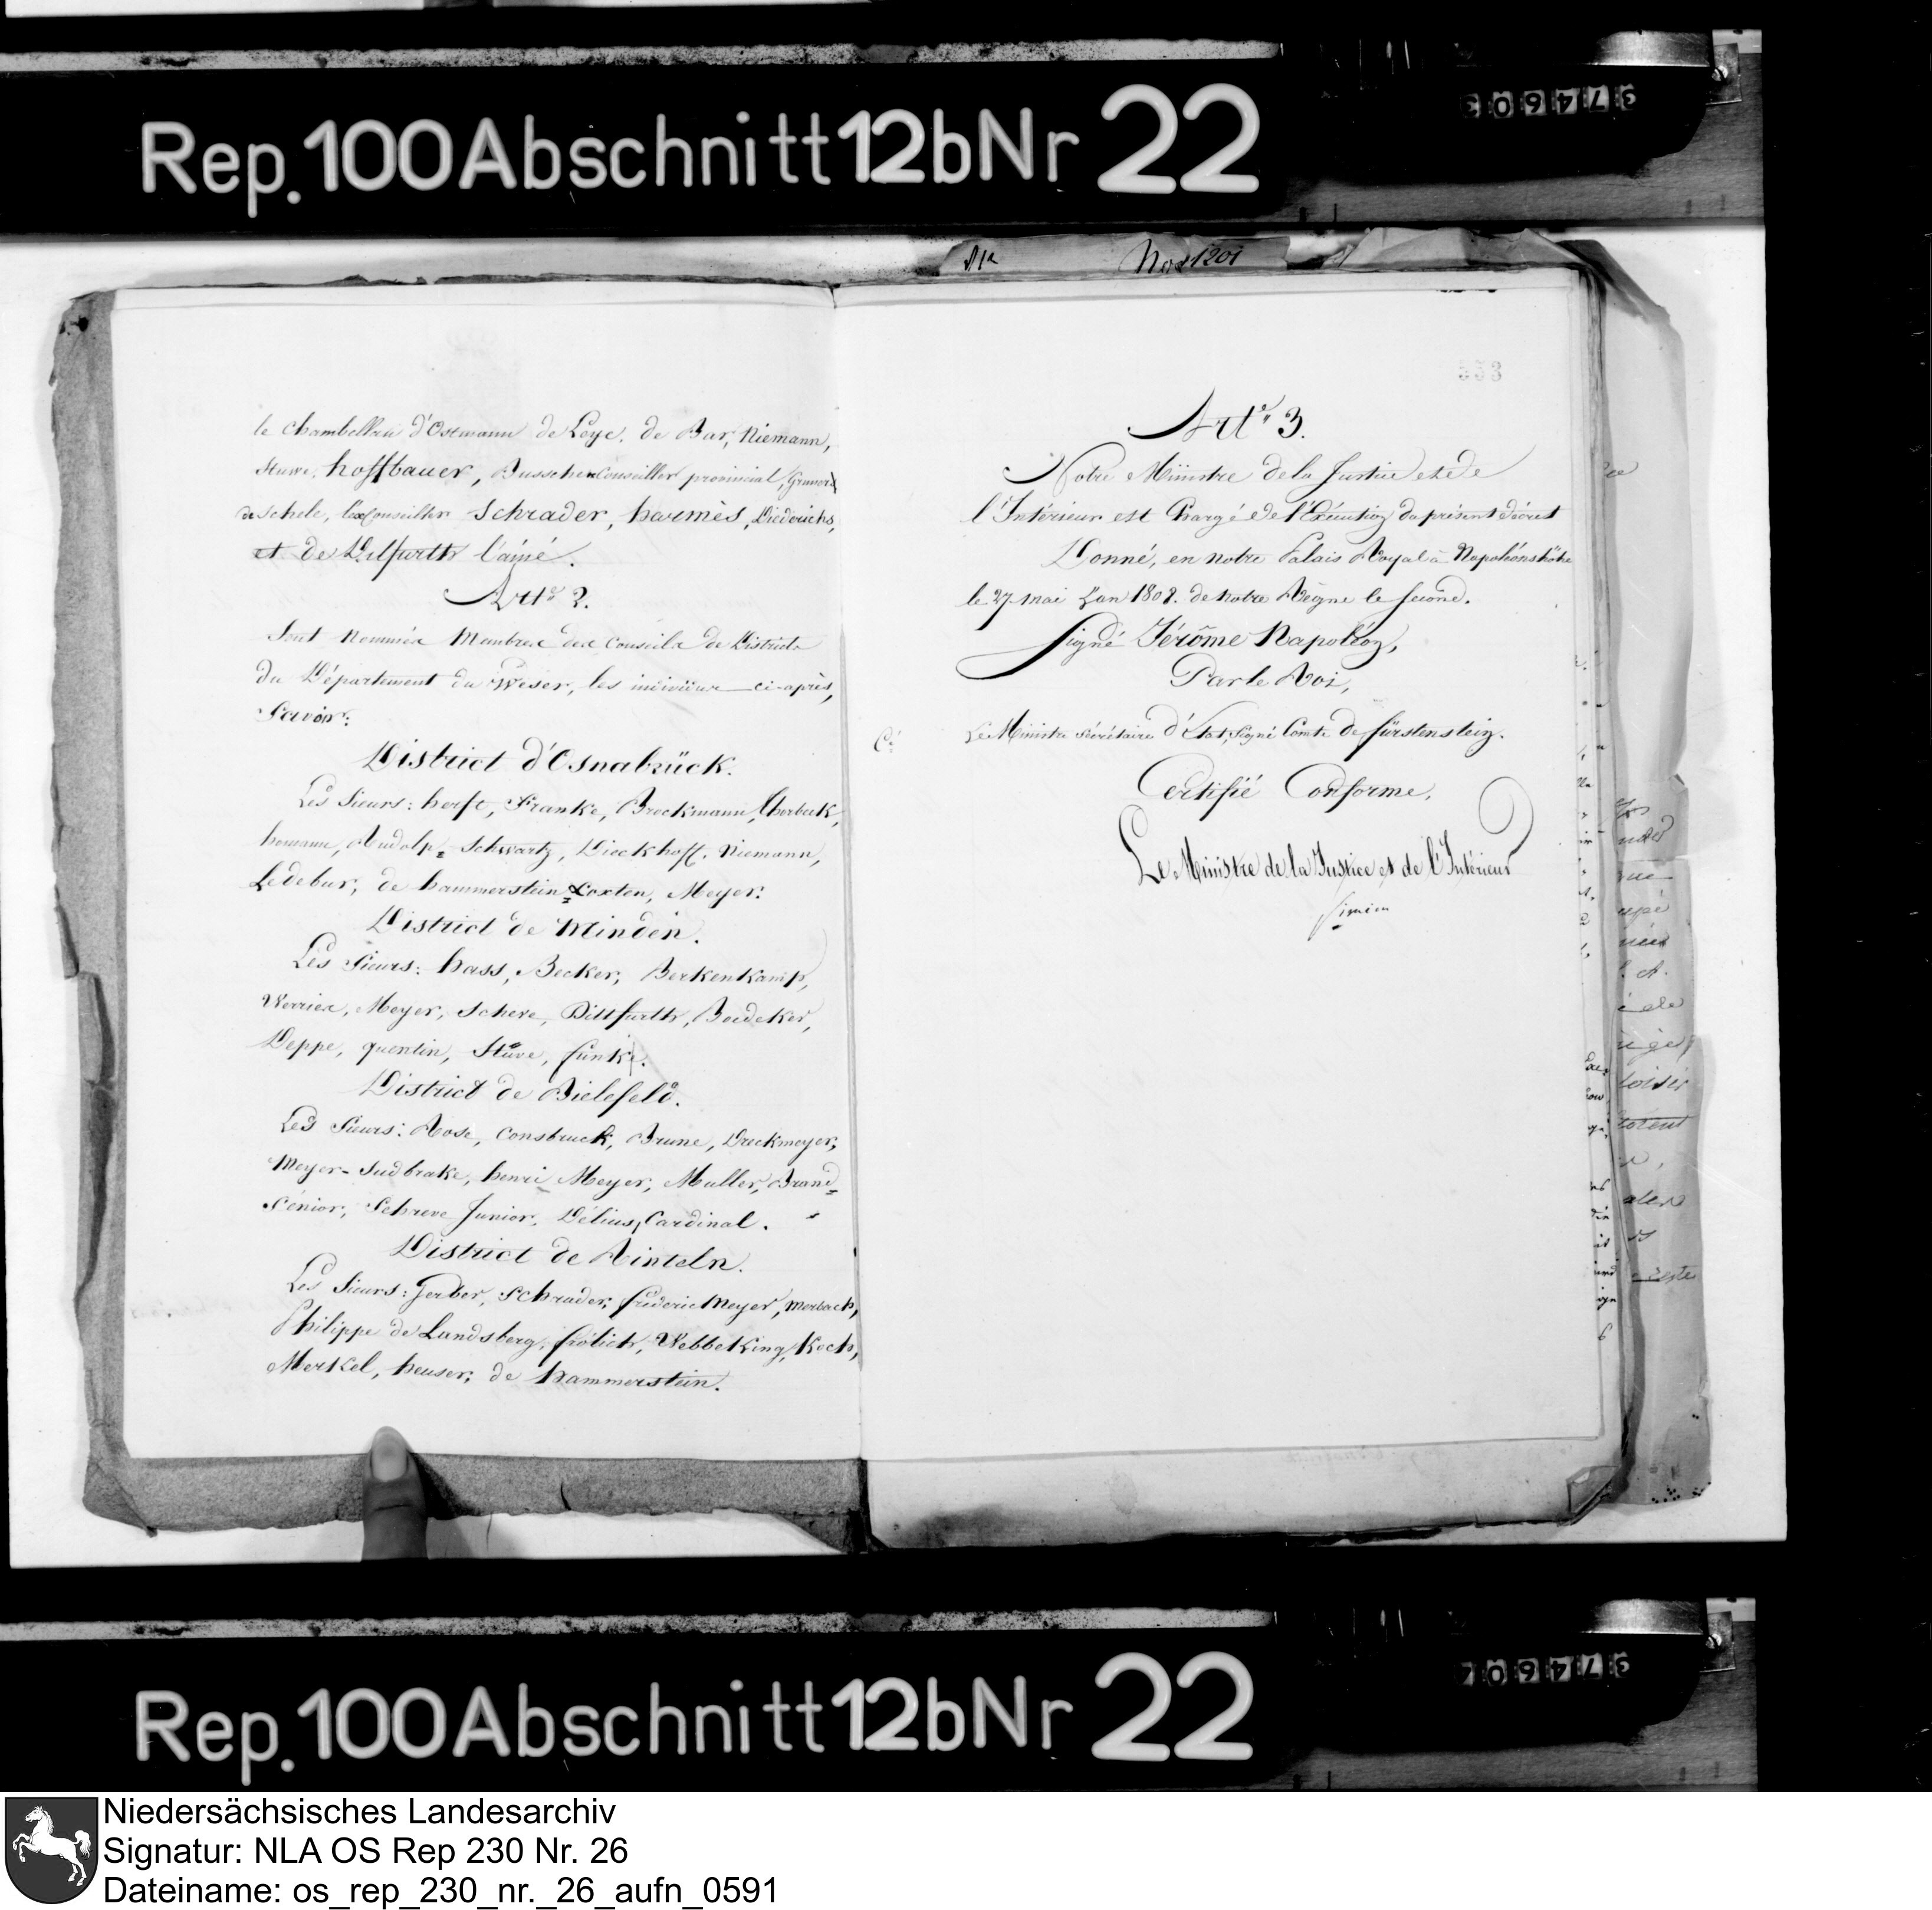 Rep. 100 Abschnitt 12b Nr 22
374603
Nos 1201
le Chambellan d'Ostmann de Leye, de Bar, Niemann,
Stuve, hoffbauer, Bussche Conseiller provincial, Gruner
de Schele, l'ex Conseiller Schrader, harmès, Diederichs,
et de Ditfurth l'ainé.
Art.e 2.
Sont nommés Membres des Conseils de Districts
du Département du Weser, les individus ci-après,
Savoir:
District d'Osnabrück.
Les Sieurs: herft, Franke, Brockmann,
homann, Rudolph Schwartz, Dieckhoff, Niemann,
Ledebur, de hammerstein Loxten, Meyer.
District de Minden.
Les Sieurs: hass, Becker, Berkenkamp,
Meyer, Schere, Dittfurth, Boedeker,
Deppe, quentin, Stüve, funk.
District de Bielefeld.
Les Sieurs: Rose, Consbruch, Brune, Dreckmeyer,
Meyer-Sudbrake, henri Meyer, Muller, Brand=
Sénior, Schreve Junior, Délius, Cardinal.
District de Rinteln.
Les Sieurs: Gerber, Schrader, fréderic Meyer, Merbach,
Philippe de Landsberg, frölich, Webbeking, Koch,
Merkel, heuser, de hammerstein.
553
Art.e 3.
Notre Ministre de la Justice et de
l'Intérieur est Chargé de l'Exécution du présent décret
Donné, en notre Palais Royal à Napoléonshöhe
le 27 mai l'an 1808. de notre Règne le second.
Signé Jérôme Napoléon,
Par le Roi,
Le Ministre Sécrétaire d'Etat, Signé Comte de fürstenstein.
Certifié Conforme,
Le Ministre de la Justice et de l'Intérieur
Siméon
Rep. 100 Abschnitt 12b Nr 22
Niedersächsisches Landesarchiv
Signatur: NLA OS Rep 230 Nr. 26
Dateiname: os_rep_230_nr._26_aufn_0591